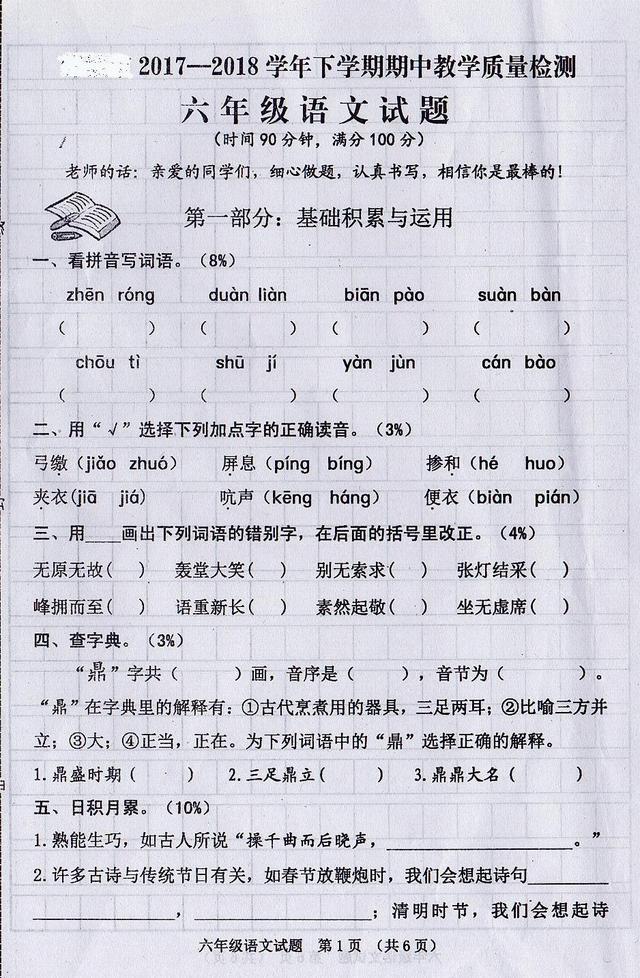 2017—2018学年下学期期中教学质量检测
六年级语文试题
（时间90分钟，满分100分）
老师的话：亲爱的同学们，细心做题，认真书写，相信你是最棒的！
第一部分：基础积累与运用
一、看拼音写词语。（8%）
zhēn róng duàn liàn biān pào suàn bàn
（ ） （ ） （ ） （ ）
chōu tì shū jí yàn jùn cán bào
（ ） （ ） （ ） （ ）
二、用“√”选择下列加点字的正确读音。（3%）
弓缴（jiǎo zhuó） 屏息（píng bǐng） 掺和（hé huo）
夹衣(jiā jiá) 吭声（kēng háng） 便衣（biàn pián）
三、用____画出下列词语的错别字，在后面的括号里改正。（4%）
无原无故( ) 轰堂大笑( ) 别无索求( ) 张灯结采( )
峰拥而至( ) 语重新长( ) 素然起敬( ) 坐无虚席( )
四、查字典。（3%）
“鼎”字共（ ）画，音序是（ ），音节为（ ）。
“鼎”在字典里的解释有：①古代烹煮用的器具，三足两耳；②比喻三方并
立；③大；④正当，正在。为下列词语中的“鼎”选择正确的解释。
1.鼎盛时期（ ） 2.三足鼎立（ ） 3.鼎鼎大名（ ）
五、日积月累。（10%）
1.熟能生巧，如古人所说“操千曲而后晓声，________________。”
2.许多古诗与传统节日有关，如春节放鞭炮时，我们会想起诗句________
______________，________________；清明时节，我们会想起诗
六年级语文试题 第1页 （共6页）